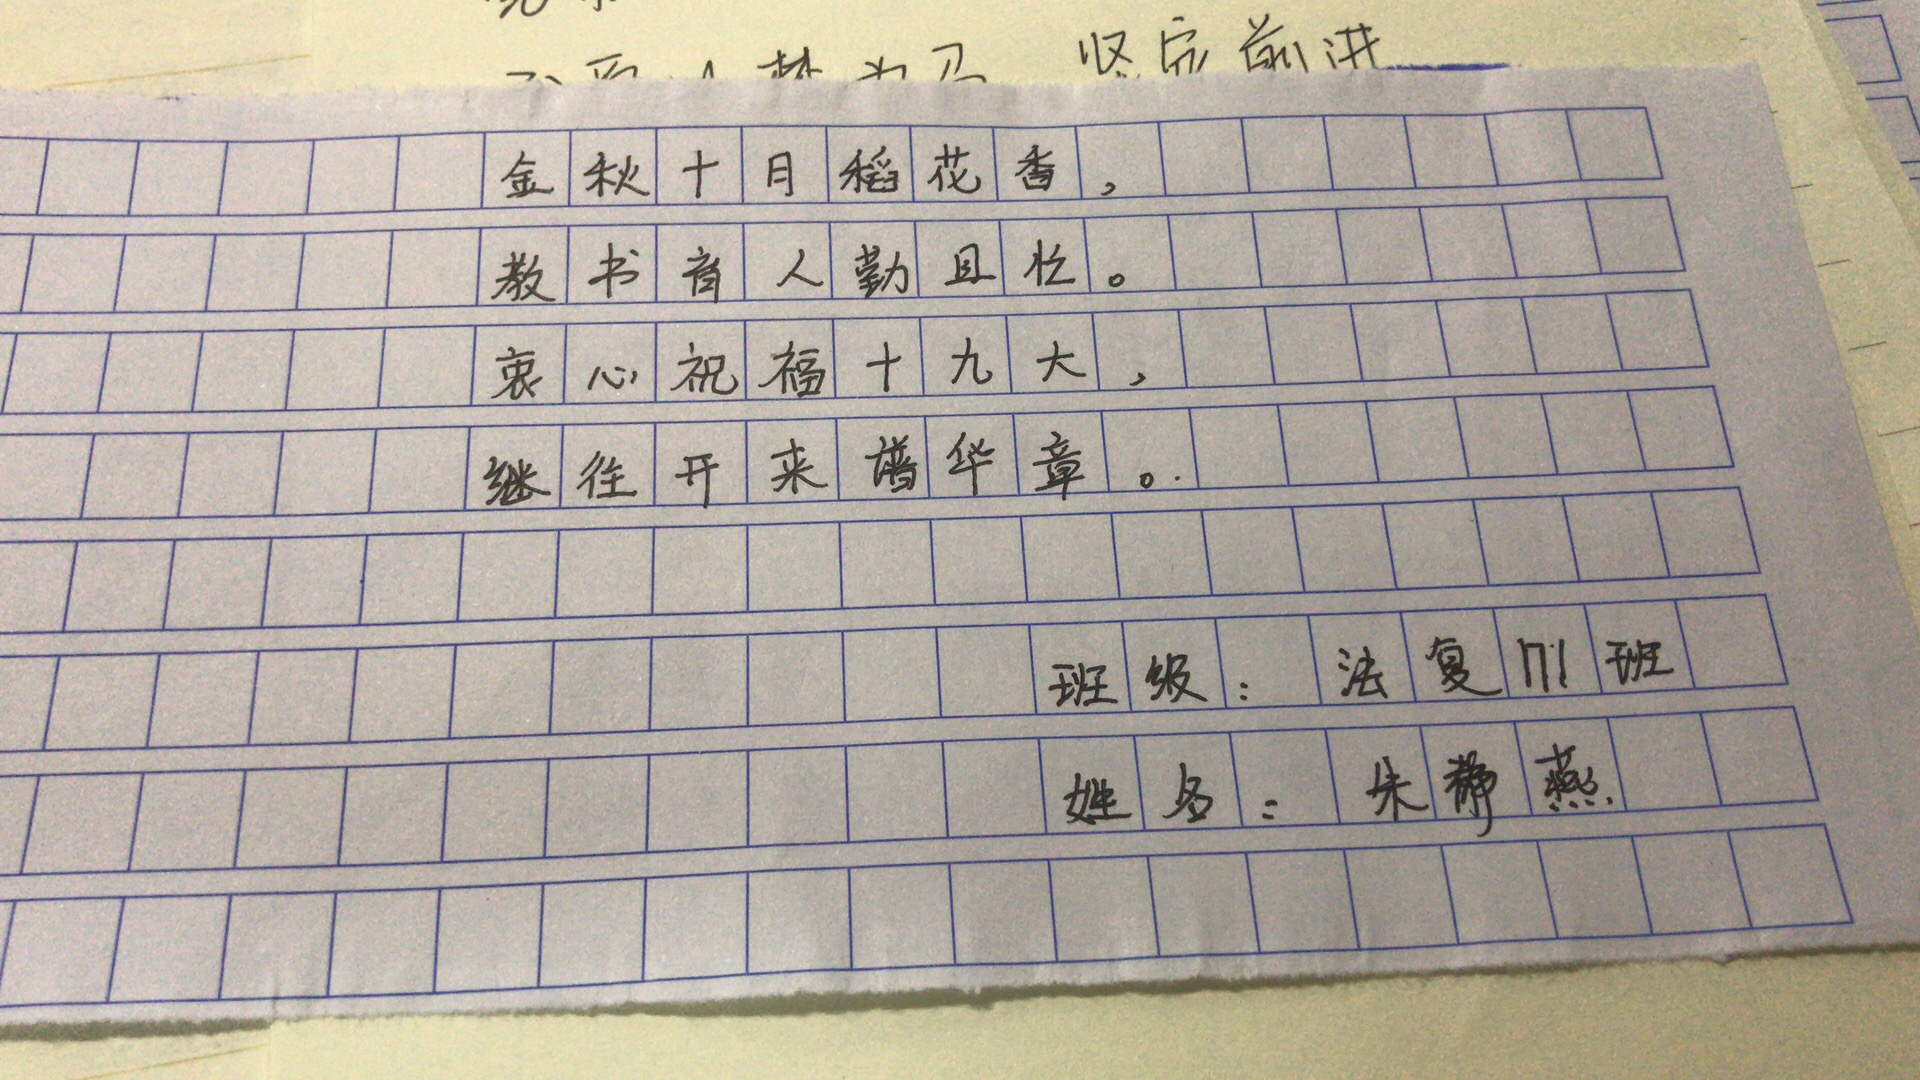 坚定前进
金秋十月稻花香，
教书育人勤且忙。
衷心祝福十九大，
继往开来谱华章。
班级：法复171班
姓名：朱静燕